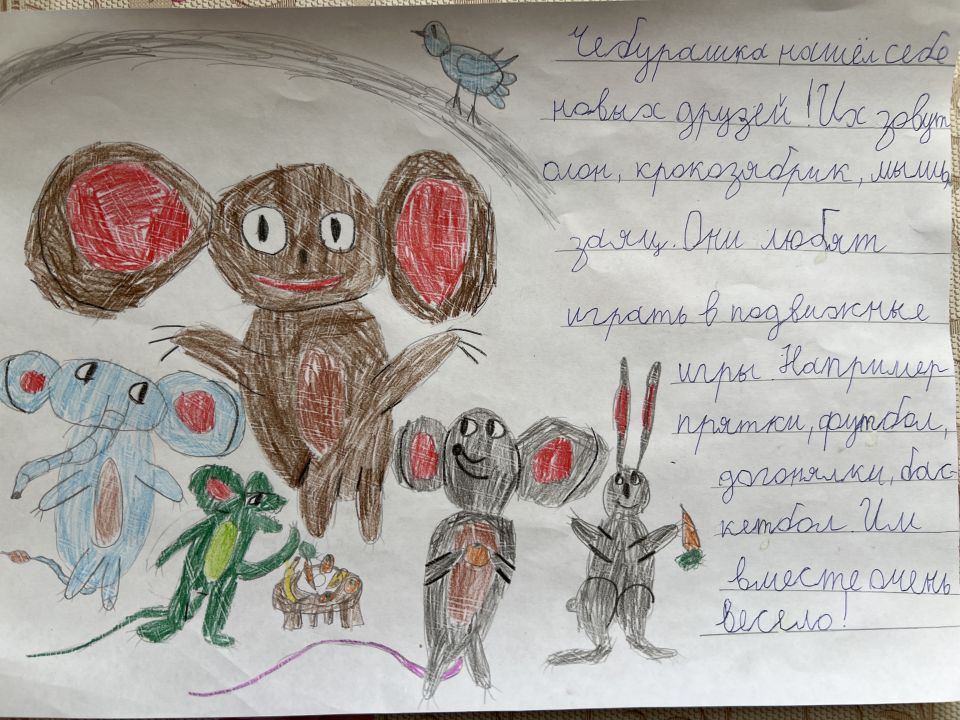 Чебурашка нашёл себе
новых друзей! Их зовут
слон, крокозябрик, мышь,
заяц. Они любят
играть в подвижные
игры. Например
прятки, футбол,
догонялки, бас-
кетбол. Им
вместе очень
весело!